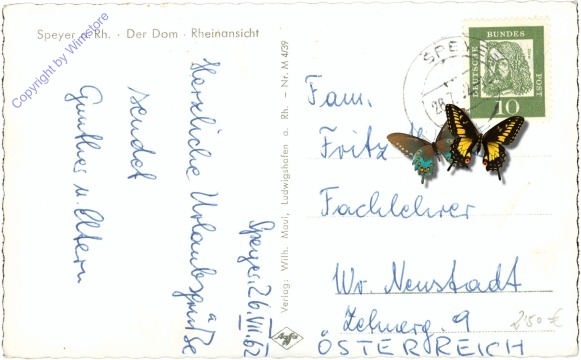 Speyer a. Rh. · Der Dom · Rheinansicht
Copyright by Winstore
Speyer, 26. VII. 62
Herzliche Urlaubsgrüße
sendet
Gunther u. Eltern
Verlag: Wilh. Maul, Ludwigshafen a. Rh. – Nr. M 4/39
Agfa
DEUTSCHE BUNDESPOST
10
SPEY
Fam.
Fritz
Fachlehrer
Wr. Neustadt
Zehnerg. 9
ÖSTERREICH
2,50 €